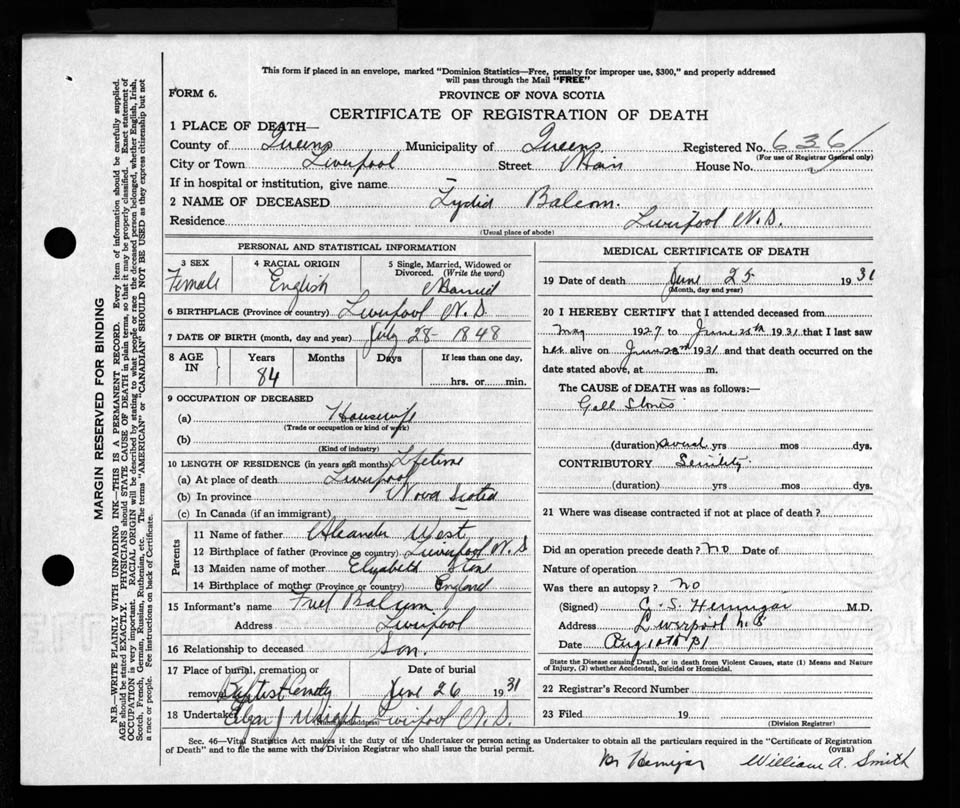 This form if placed in an envelope, marked "Dominion Statistics—Free, penalty for improper use, $300," and properly addressed
will pass through the Mail "FREE"
FORM 6.
PROVINCE OF NOVA SCOTIA
CERTIFICATE OF REGISTRATION OF DEATH
1 PLACE OF DEATH—
County of Queens Municipality of Queens Registered No. 636
(For use of Registrar General only)
City or Town Liverpool Street Main House No.
If in hospital or institution, give name —
2 NAME OF DECEASED Lydia Balcom.
Residence Liverpool N.S.
(Usual place of abode)
PERSONAL AND STATISTICAL INFORMATION
3 SEX 4 RACIAL ORIGIN 5 Single, Married, Widowed or Divorced. (Write the word)
Female English Married
6 BIRTHPLACE (Province or country) Liverpool N.S
7 DATE OF BIRTH (month, day and year) July 28 - 1848
8 AGE IN Years Months Days If less than one day,
84 hrs. or min.
9 OCCUPATION OF DECEASED
(a) Housewife
(Trade or occupation or kind of work)
(b)
(Kind of industry)
10 LENGTH OF RESIDENCE (in years and months) Lifetime
(a) At place of death Liverpool
(b) In province Nova Scotia
(c) In Canada (if an immigrant) —
Parents
11 Name of father Aleander West
12 Birthplace of father (Province or country) Liverpool N.S
13 Maiden name of mother Elizabeth
14 Birthplace of mother (Province or country) England
15 Informant's name Balcom
Address Liverpool
16 Relationship to deceased Son.
17 Place of burial, cremation or Date of burial
removal Baptist June 26 1931
18 Undertaker J Wright Liverpool N.S.
MEDICAL CERTIFICATE OF DEATH
19 Date of death June 25 1931
(Month, day and year)
20 I HEREBY CERTIFY that I attended deceased from
May 1927 to June 25th 1931 that I last saw
her alive on June 1931 and that death occurred on the
date stated above, at m.
The CAUSE OF DEATH was as follows:—
Gall Stones
(duration) several yrs mos dys.
CONTRIBUTORY Senility
(duration) yrs mos dys.
21 Where was disease contracted if not at place of death?
Did an operation precede death? No Date of
Nature of operation
Was there an autopsy? No
(Signed) C. S. Hennigar M.D.
Address Liverpool N.S
Date Aug 10th 31
State the Disease causing Death, or in death from Violent Causes, state (1) Means and Nature
of Injury, (2) whether Accidental, Suicidal or Homicidal.
22 Registrar's Record Number
23 Filed 19
(Division Registrar)
Sec. 46—Vital Statistics Act makes it the duty of the Undertaker or person acting as Undertaker to obtain all the particulars required in the "Certificate of Registration
of Death" and to file the same with the Division Registrar who shall issue the burial permit.
(OVER)
Dr Hennigar William A. Smith
MARGIN RESERVED FOR BINDING
N.B.—WRITE PLAINLY WITH UNFADING INK—THIS IS A PERMANENT RECORD. Every item of information should be carefully supplied.
AGE should be stated EXACTLY. PHYSICIANS should STATE CAUSE OF DEATH in plain terms, so that it may be properly classified. Exact statement of
OCCUPATION is very important. RACIAL ORIGIN will be described by stating to what people or race the deceased person belonged, whether English, Irish,
Scotch, French, German, Russian, Ruthenian, etc. The terms "AMERICAN" or "CANADIAN" SHOULD NOT BE USED as they express citizenship but not
a race or people. See instructions on back of Certificate.